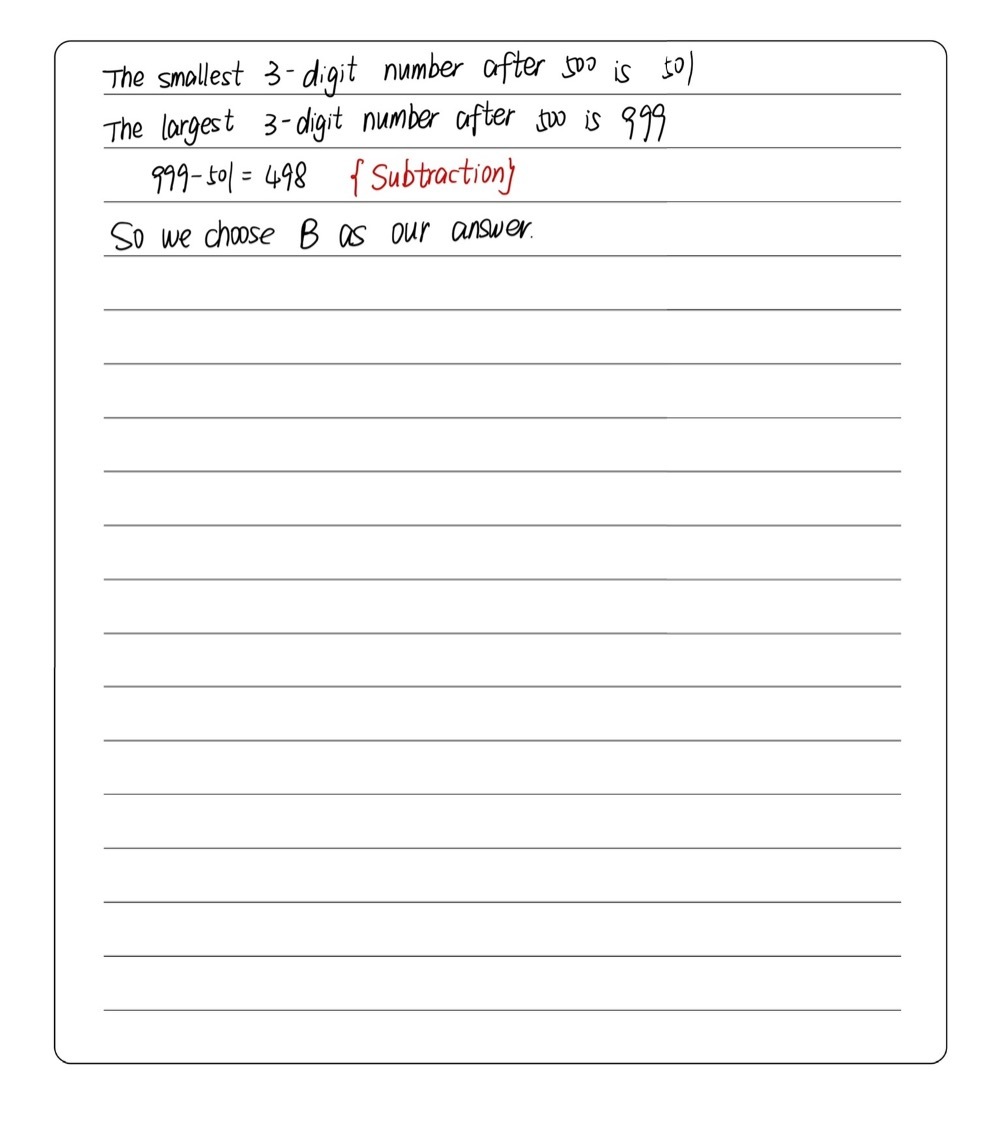 The smallest 3-digit number after 500 is 501
The largest 3-digit number after 500 is 999
999-501 = 498 {Subtraction}
So we choose B as our answer.